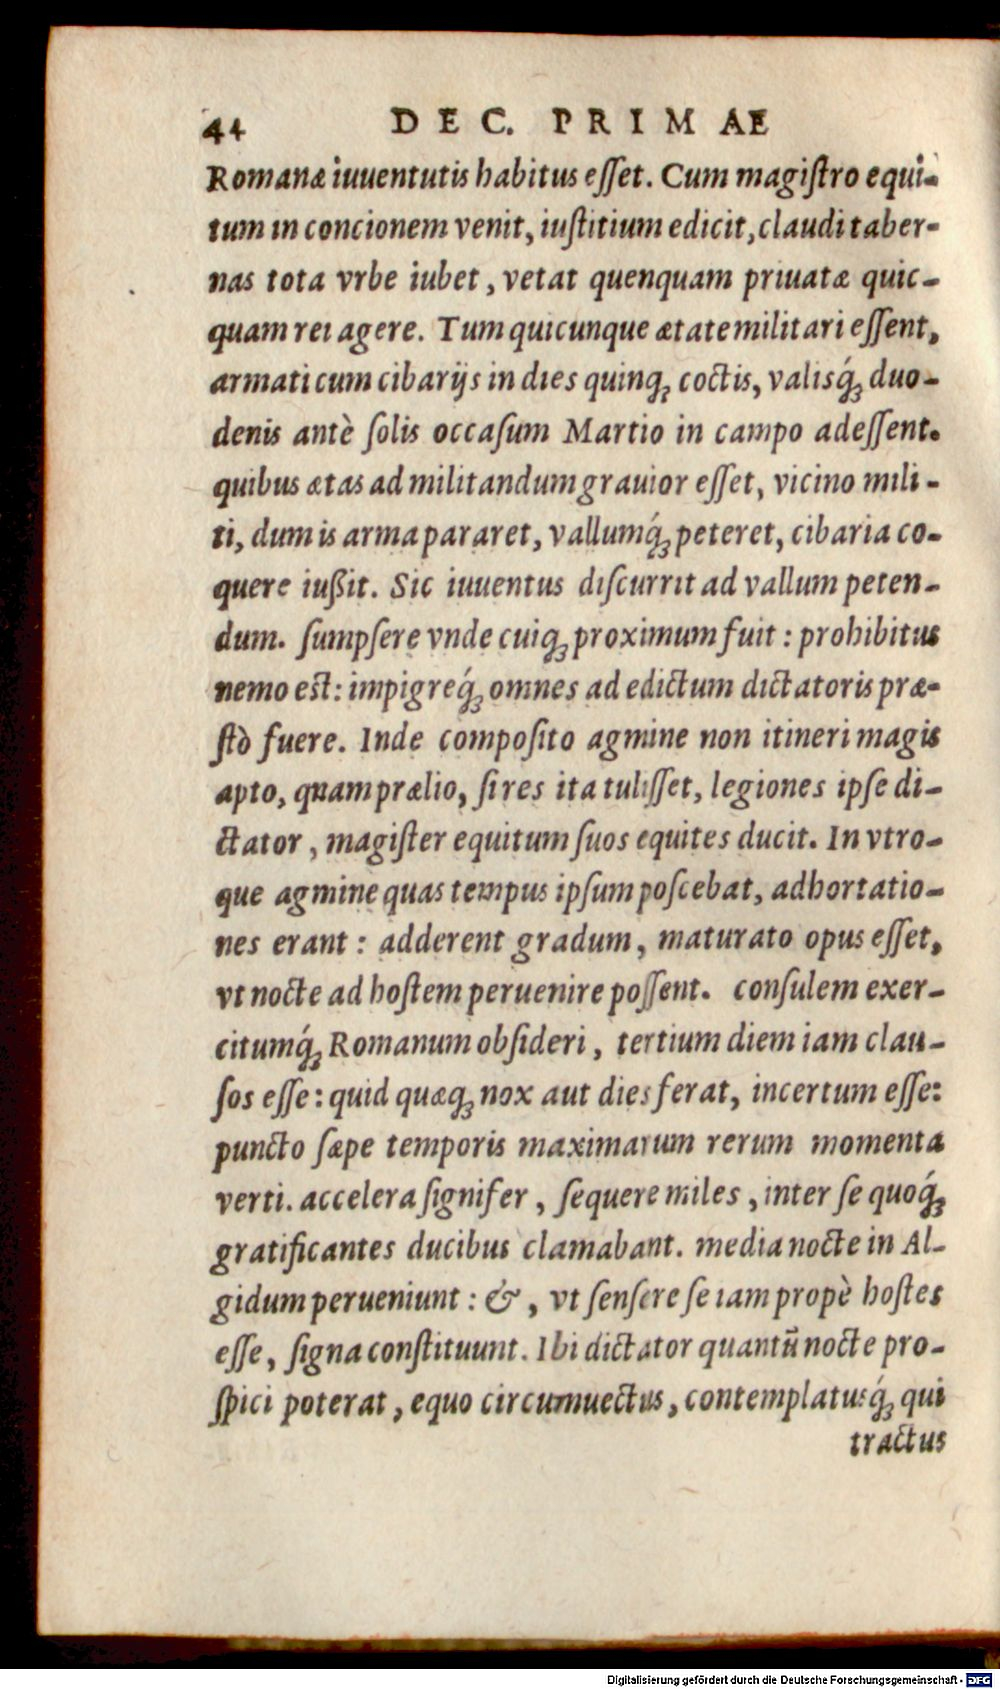 44 DEC. PRIMAE
Romanæ iuuentutis habitus eſſet. Cum magiſtro equi-
tum in concionem venit, iuſtitium edicit, claudi taber-
nas tota vrbe iubet, vetat quenquam priuatæ quic-
quam rei agere. Tum quicunque ætate militari eſſent,
armati cum cibarijs in dies quinq; coctis, valisq́; duo-
denis antè ſolis occaſum Martio in campo adeſſent.
quibus ætas ad militandum grauior eſſet, vicino mili-
ti, dum is arma pararet, vallumq́; peteret, cibaria co-
quere iußit. Sic iuuentus diſcurrit ad vallum peten-
dum. ſumpſere vnde cuiq; proximum fuit: prohibitus
nemo est: impigreq́; omnes ad edictum dictatoris præ-
ſtò fuere. Inde compoſito agmine non itineri magis
apto, quam prælio, ſi res ita tuliſſet, legiones ipſe di-
ctator, magiſter equitum ſuos equites ducit. In vtro-
que agmine quas tempus ipſum poſcebat, adhortatio-
nes erant: adderent gradum, maturato opus eſſet,
vt nocte ad hoſtem peruenire poſſent. conſulem exer-
citumq́; Romanum obſideri, tertium diem iam clau-
ſos eſſe: quid quæq; nox aut dies ferat, incertum eſſe:
puncto ſæpe temporis maximarum rerum momenta
verti. accelera ſignifer, ſequere miles, inter ſe quoq́;
gratificantes ducibus clamabant. media nocte in Al-
gidum perueniunt: &, vt ſenſere ſe iam propè hoſtes
eſſe, ſigna conſtituunt. Ibi dictator quantũ nocte pro-
ſpici poterat, equo circumuectus, contemplatusq́; qui
tractus
Digitalisierung gefördert durch die Deutsche Forschungsgemeinschaft - DFG